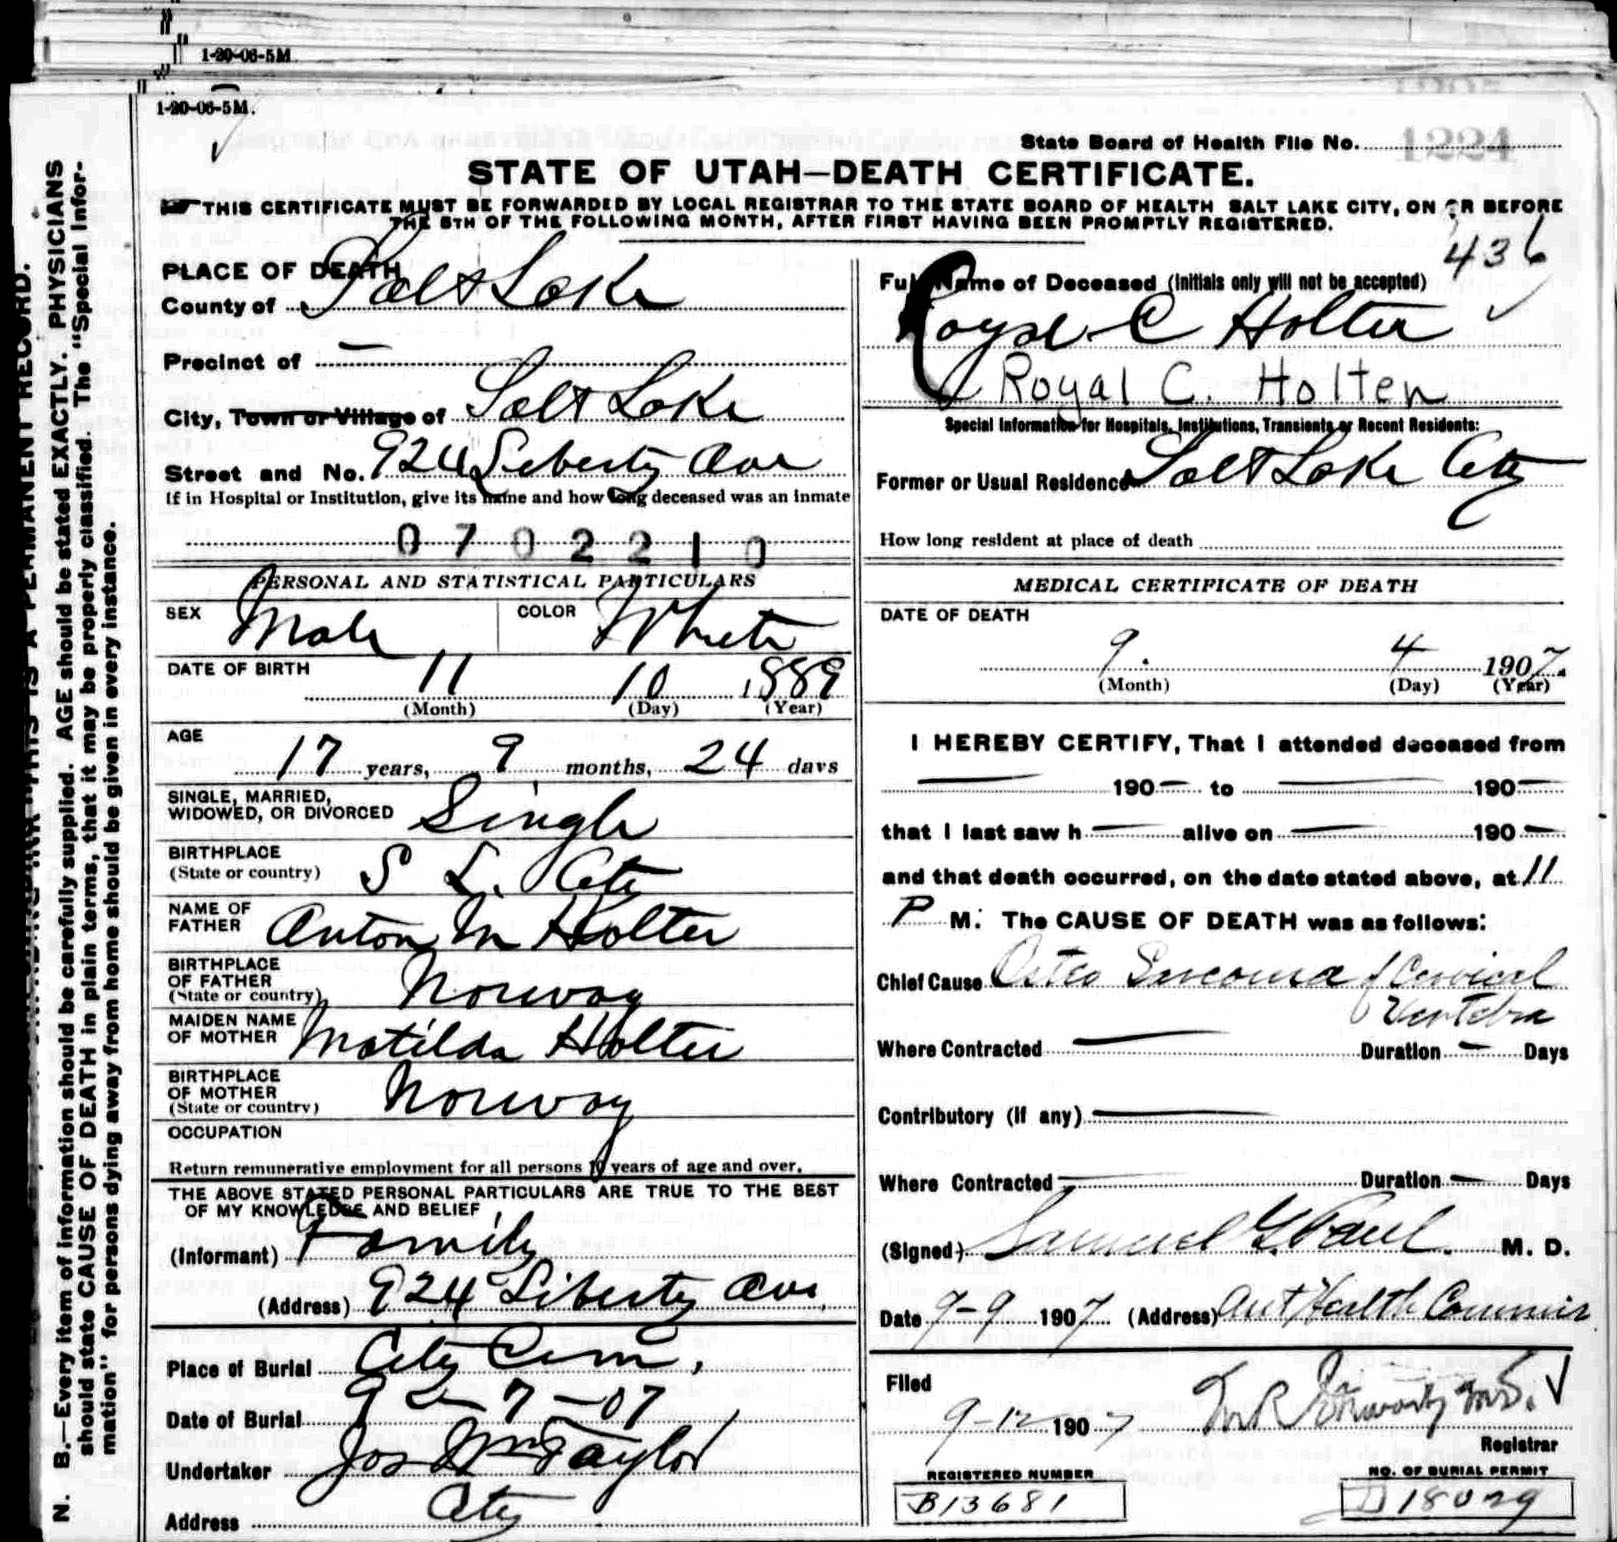 1-20-06-5M
1-20-06-5M.
State Board of Health File No. 1224
STATE OF UTAH—DEATH CERTIFICATE.
THIS CERTIFICATE MUST BE FORWARDED BY LOCAL REGISTRAR TO THE STATE BOARD OF HEALTH SALT LAKE CITY, ON OR BEFORE
THE 5TH OF THE FOLLOWING MONTH, AFTER FIRST HAVING BEEN PROMPTLY REGISTERED.
N. B.—Every item of information should be carefully supplied. AGE should be stated EXACTLY. PHYSICIANS
should state CAUSE OF DEATH in plain terms, that it may be properly classified. The "Special Infor-
mation" for persons dying away from home should be given in every instance.
THIS IS A PERMANENT RECORD.
PLACE OF DEATH
County of Salt Lake
Precinct of —
City, Town or Village of Salt Lake
Street and No. 924 Liberty Ave
If in Hospital or Institution, give its name and how long deceased was an inmate
0702210
PERSONAL AND STATISTICAL PARTICULARS
SEX Male COLOR White
DATE OF BIRTH 11 10 1889
(Month) (Day) (Year)
AGE
17 years, 9 months, 24 days
SINGLE, MARRIED,
WIDOWED, OR DIVORCED Single
BIRTHPLACE
(State or country) S L. City
NAME OF
FATHER Anton M Holter
BIRTHPLACE
OF FATHER
(State or country) Norway
MAIDEN NAME
OF MOTHER Matilda Holter
BIRTHPLACE
OF MOTHER
(State or country) Norway
OCCUPATION
Return remunerative employment for all persons 10 years of age and over.
THE ABOVE STATED PERSONAL PARTICULARS ARE TRUE TO THE BEST
OF MY KNOWLEDGE AND BELIEF
(Informant) Family
(Address) 924 Liberty Ave,
Place of Burial City Cem,
Date of Burial 9 – 7 – 07
Undertaker Jos Wm Taylor
Address City
436
Full Name of Deceased (Initials only will not be accepted)
Royal C Holter
Royal C. Holten
Special Information for Hospitals, Institutions, Transients or Recent Residents:
Former or Usual Residence Salt Lake City
How long resident at place of death
MEDICAL CERTIFICATE OF DEATH
DATE OF DEATH
9. 4 1907.
(Month) (Day) (Year)
I HEREBY CERTIFY, That I attended deceased from
— 190— to — 190—
that I last saw h— alive on — 190—
and that death occurred, on the date stated above, at 11
P M. The CAUSE OF DEATH was as follows:
Chief Cause Osteo Sarcoma of Cervical
Vertebra
Where Contracted — Duration — Days
Contributory (if any) —
Where Contracted — Duration — Days
(Signed) Samuel G. Paul. M. D.
Date 9-9 1907 (Address) Health Commis
Filed
9-12 1907
Registrar
REGISTERED NUMBER
B13681
NO. OF BURIAL PERMIT
D 18029